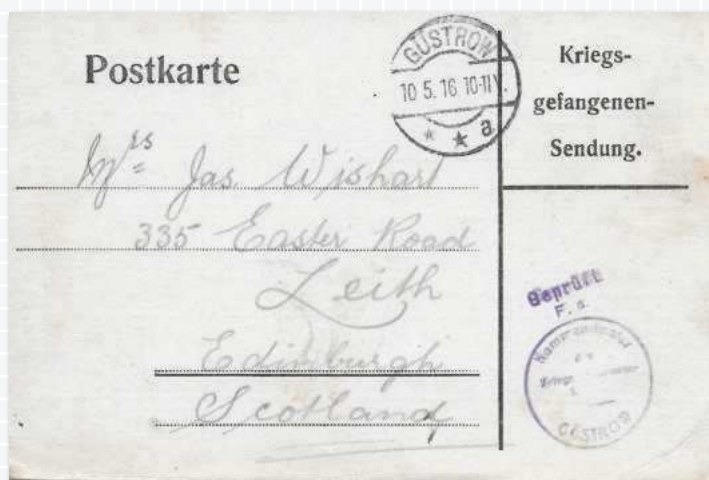 Postkarte
GÜSTROW
10 5.16 10-11V.
* * a
Kriegs-
gefangenen-
Sendung.
Mrs Jas. Wishart
335 Easter Road
Leith
Edinburgh
Scotland
Geprüft
F. a.
Kommandantur
GÜSTROW